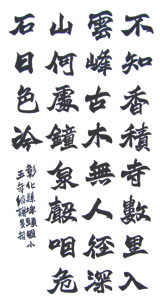 不知香積寺數里入
雲峰古木無人徑深
山何處鐘泉聲咽危
石日色冷
彰化縣埤頭國小